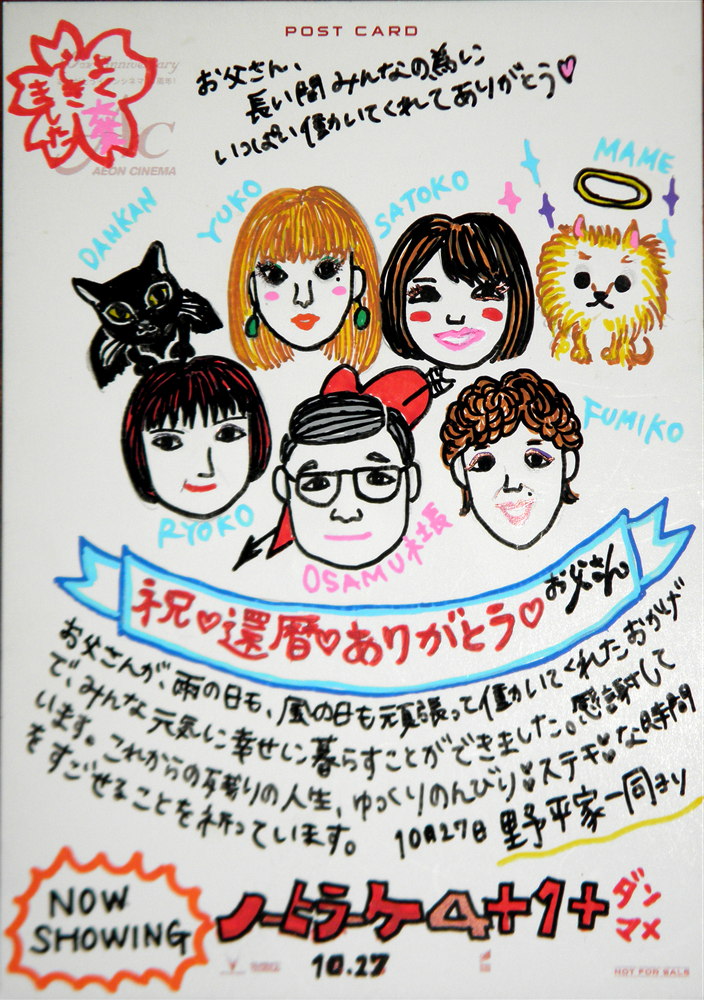 POST CARD
よくできました
大変
AEON CINEMA
お父さん、
長い間みんなの為に
いっぱい働いてくれてありがとう♡
MAME
DANKAN
YUKO
SATOKO
FUMIKO
RYOKO
OSAMU社長
祝♡還暦♡ありがとう♡お父さん
お父さんが、雨の日も、風の日も頑張って働いてくれたおかげ
で、みんな元気に幸せに暮らすことができました。感謝して
います。これからの残りの人生、ゆっくりのんびり♥ステキ♥な時間
をすごせることを祈っています。
10月27日 野平家一同より
NOW
SHOWING
ノーヒラーケ4+1+
ダン
マメ
10.27
NOT FOR SALE